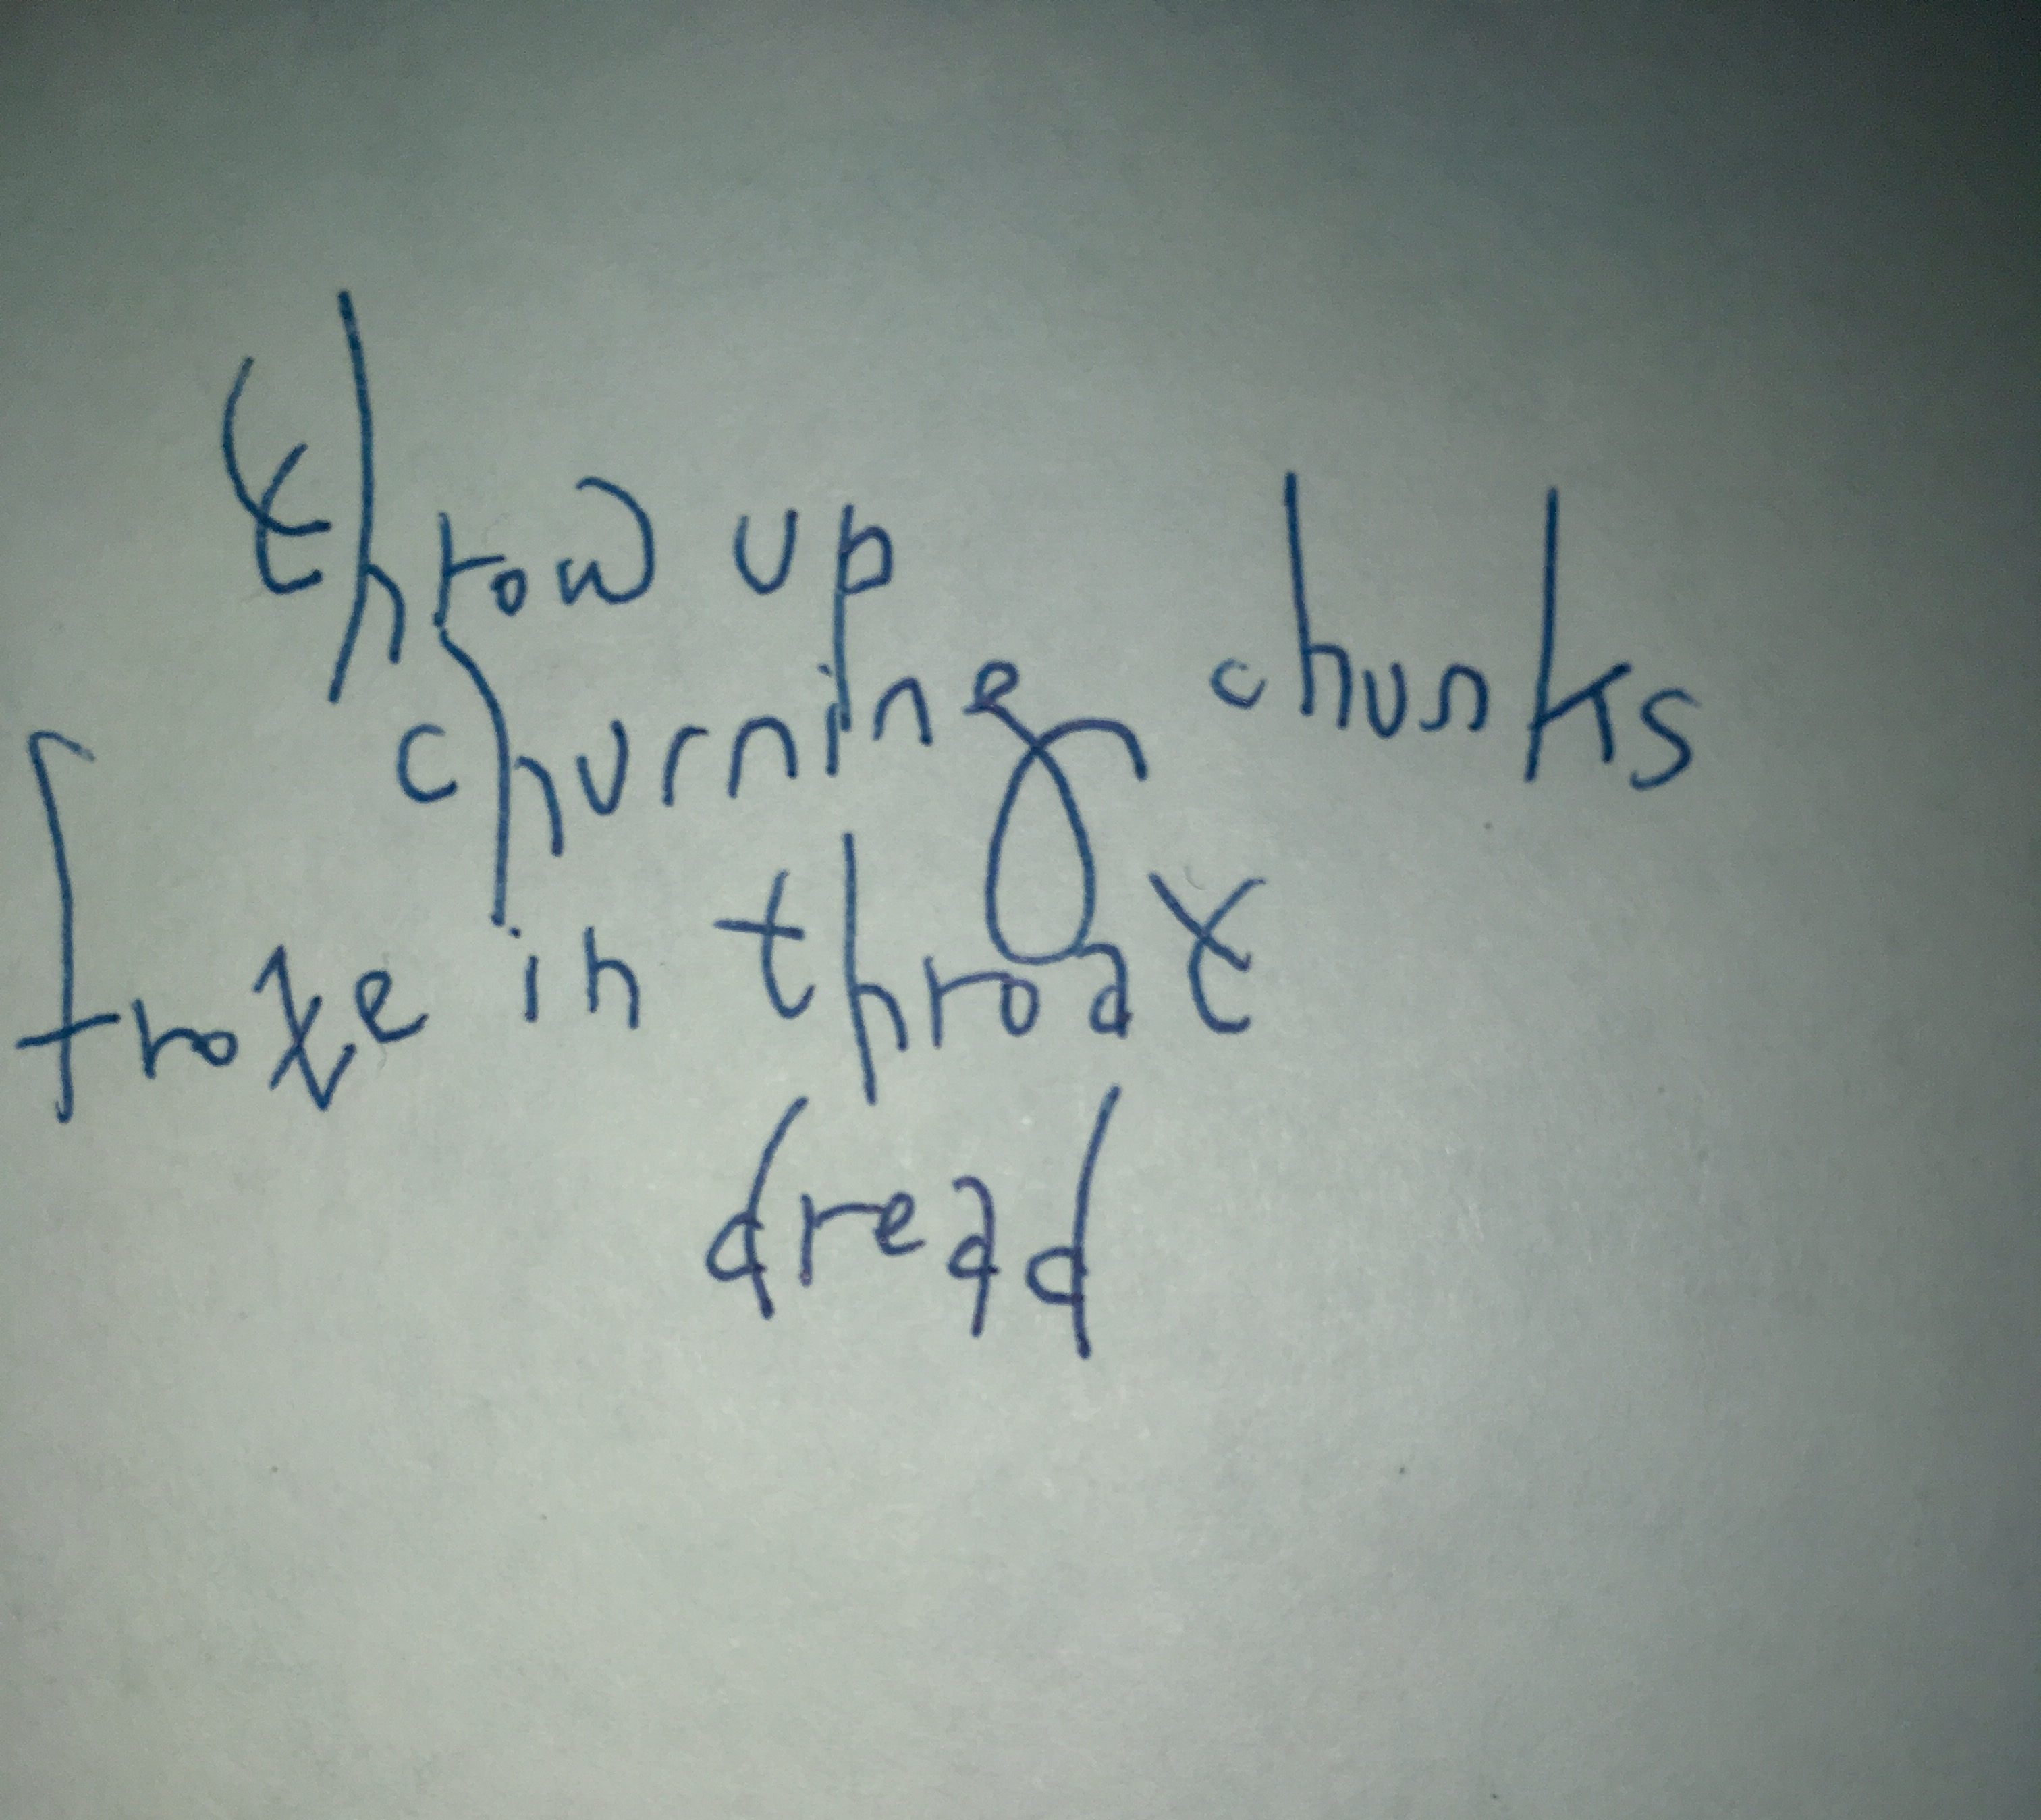 throw up
churning chunks
froze in throat
dread